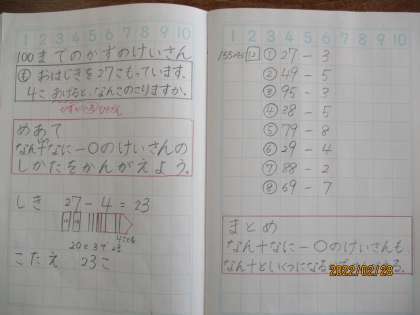 1 2 3 4 5 6 7 8 9 10
100までのかずのけいさん
おはじきを27こもっています。
4こあげると、なんこのこりますか。
めあて
なん十なに－○のけいさんの
しかたをかんがえよう。
しき 27－4＝23
20と3で23
こたえ 23こ
1 2 3 4 5 6 7 8 9 10
① 27－3
② 49－5
③ 95－
④ 38－5
⑤ 79－8
⑥ 29－4
⑦ 88－2
⑧ 69－7
まとめ
なん十なに－○のけいさんも
なん十といくつになる
2022/02/28